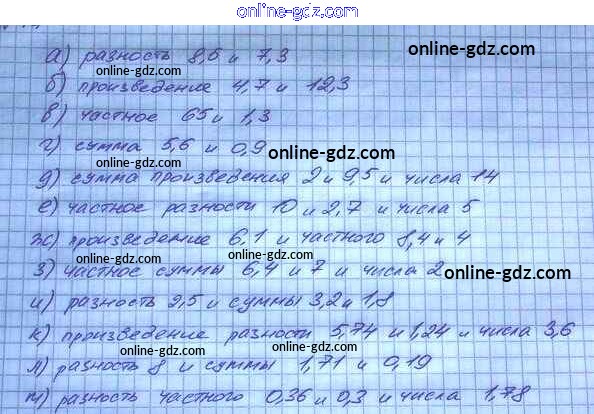 online-gdz.com
а) разность 8,6 и 7,3
online-gdz.com
online-gdz.com
б) произведение 4,7 и 12,3
online-gdz.com
в) частное 65 и 1,3
online-gdz.com
г) сумма 5,6 и 0,9
online-gdz.com
online-gdz.com
д) сумма произведения 2 и 9,5 и числа 14
е) частное разности 10 и 2,7 и числа 5
online-gdz.com
ж) произведение 6,1 и частного 8,4 и 4
з) частное суммы 6,4 и 7 и числа 2
online-gdz.com
и) разность 9,5 и суммы 3,2 и 1,8
online-gdz.com
к) произведение разности 5,74 и 1,24 и числа 3,6
online-gdz.com
online-gdz.com
л) разность 8 и суммы 1,71 и 0,19
м) разность частного 0,36 и 0,3 и числа 1,78
online-gdz.com